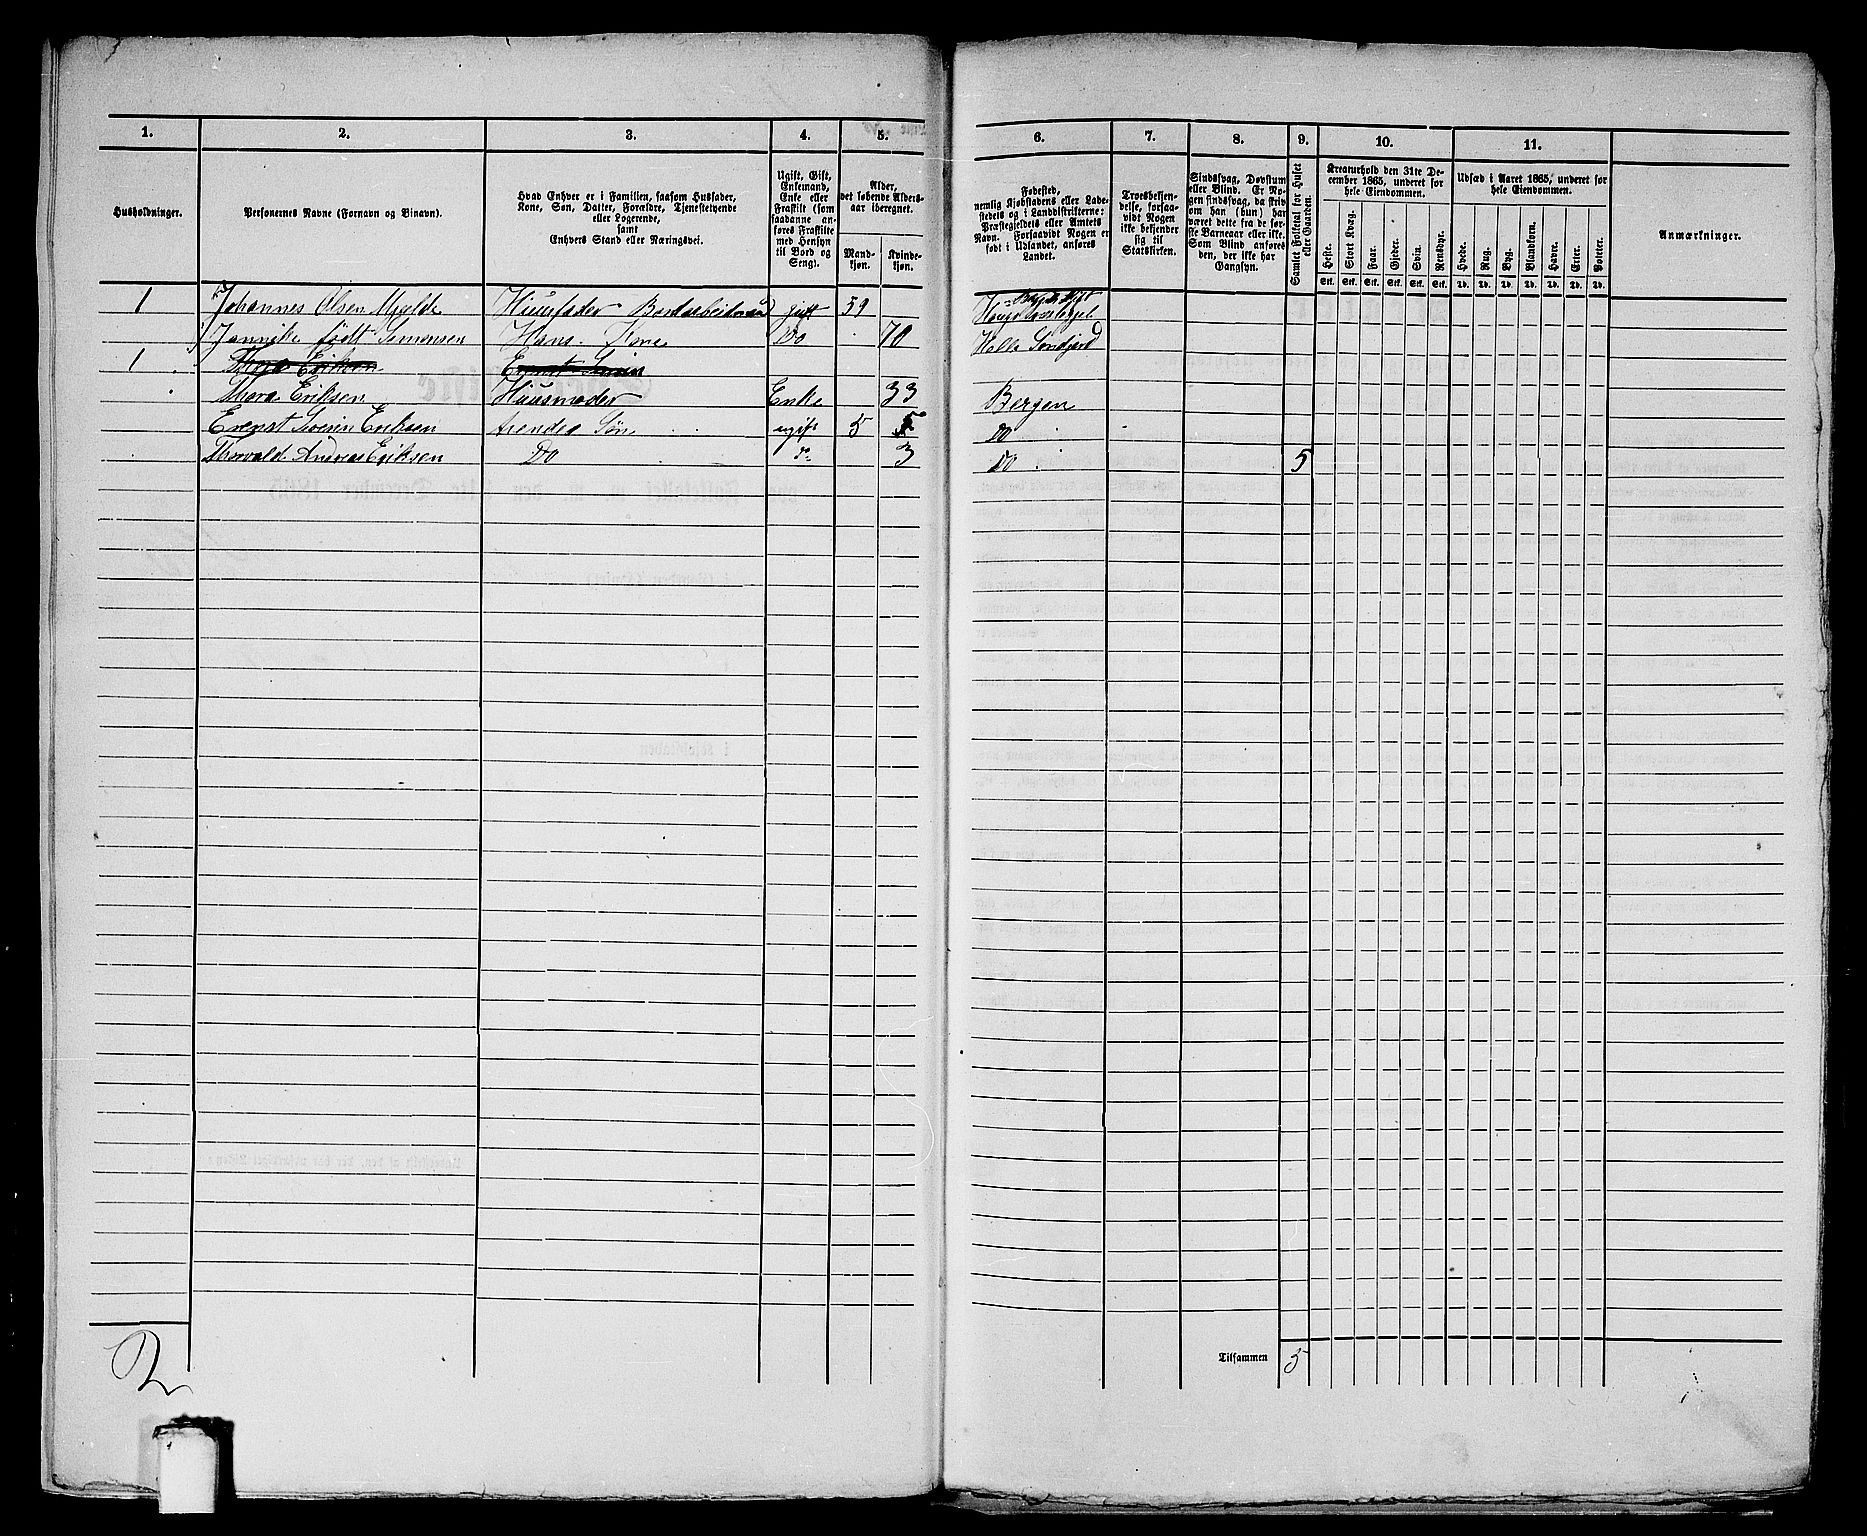 1. 2. 3. 4. 5. 6. 7. 8. 9. 10. 11.
Husholdninger.
Personernes Navne (Fornavn og Binavn).
Hvad Enhver er i Familien, saasom Husfader,
Kone, Søn, Datter, Forældre, Tjenestetyende
eller Logerende,
samt
Enhvers Stand eller Næringsvei.
Ugift, Gift,
Enkemand,
Enke eller
Fraskilt (som
saadanne an-
føres Fraskilte
med Hensyn
til Bord og
Seng).
Alder,
det løbende Alders-
aar iberegnet.
Mand-
kjøn.
Kvinde-
kjøn.
Fødested,
nemlig Kjøbstadens eller Lade-
stedets og i Landdistrikterne:
Præstegjeldets eller Amtets
Navn. Forsaavidt Nogen er
født i Udlandet, anføres
Landet.
Troesbekjen-
delse, forsaa-
vidt Nogen
ikke bekjender
sig til
Statskirken.
Sindssvag, Døvstum
eller Blind. Er No-
gen sindssvag, da skriv
om han (hun) har
været dette fra de før-
ste Barneaar eller ikke.
Som Blind anføres
den, der ikke har
Gangsyn.
Samlet Folketal for Huset
eller Gaarden.
Kreaturhold den 31te De-
cember 1865, underet for
hele Eiendommen.
Heste. Stort Kvæg. Faar. Gjeder. Svin. Rensdyr.
Stk. Stk. Stk. Stk. Stk. Stk.
Udsæd i Aaret 1865, underet for
hele Eiendommen.
Hvede. Rug. Byg. Blandkorn. Havre. Erter. Poteter.
Td. Td. Td. Td. Td. Td. Td.
Anmærkninger.
1 Johannes Olsen Mjelde Huusfader gift 59
Jannike født Semonsen Hans Kone Do 70
1 Thora Eriksen
Thora Eriksen Huusmoder Enke 33 Bergen
Erenst Eriksen hendes Søn ugift 5 5 Do
Thorvald Andreas Eriksen Do 3 Do 5
2
Tilsammen 5